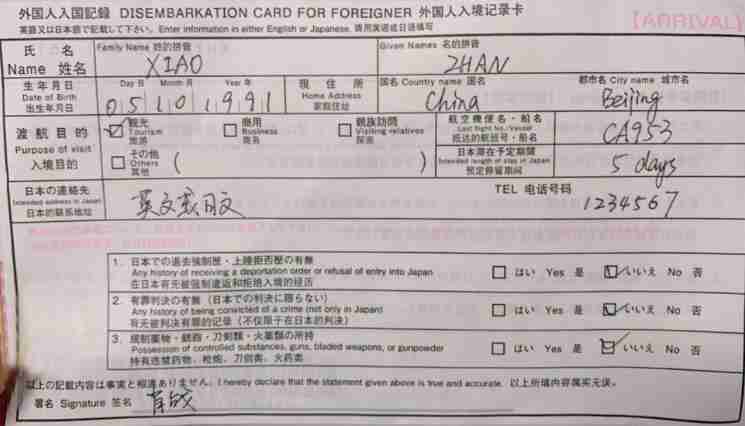 外国人入国記録 DISEMBARKATION CARD FOR FOREIGNER 外国人入境记录卡
英語又は日本語で記載して下さい。Enter information in either English or Japanese. 请用英语或日语填写
[ARRIVAL]
氏 名 Family Name 姓的拼音 Given Names 名的拼音
Name 姓名 XIAO ZHAN
生年月日 Day 日 Month 月 Year 年 現住所 国名 Country name 国名 都市名 City name 城市名
Date of Birth Home Address
出生年月日 05101991 家庭住址 China Beijing
渡航目的 観光 商用 親族訪問 航空機便名・船名
Purpose of visit Tourism Business Visiting relatives Last flight No./Vessel CA953
入境目的 旅游 商务 探亲 抵达的航班号・船名
その他 日本滞在予定期間
Others ( ) Intended length of stay in Japan 5 days
其他 预定停留期间
日本の連絡先 TEL 电话号码
Intended address in Japan 英文或日文 1234567
日本的联系地址
1. 日本での退去強制歴・上陸拒否歴の有無
Any history of receiving a deportation order or refusal of entry into Japan はい Yes 是 いいえ No 否
在日本有无被强制遣返和拒绝入境的经历
2. 有罪判決の有無（日本での判決に限らない）
Any history of being convicted of a crime (not only in Japan) はい Yes 是 いいえ No 否
有无被判决有罪的记录（不仅限于在日本的判决）
3. 規制薬物・銃砲・刀剣類・火薬類の所持
Possession of controlled substances, guns, bladed weapons, or gunpowder はい Yes 是 いいえ No 否
持有违禁药物、枪炮、刀剑类、火药类
以上の記載内容は事実と相違ありません。I hereby declare that the statement given above is true and accurate. 以上所填内容属实无误。
署名 Signature 签名 肖战